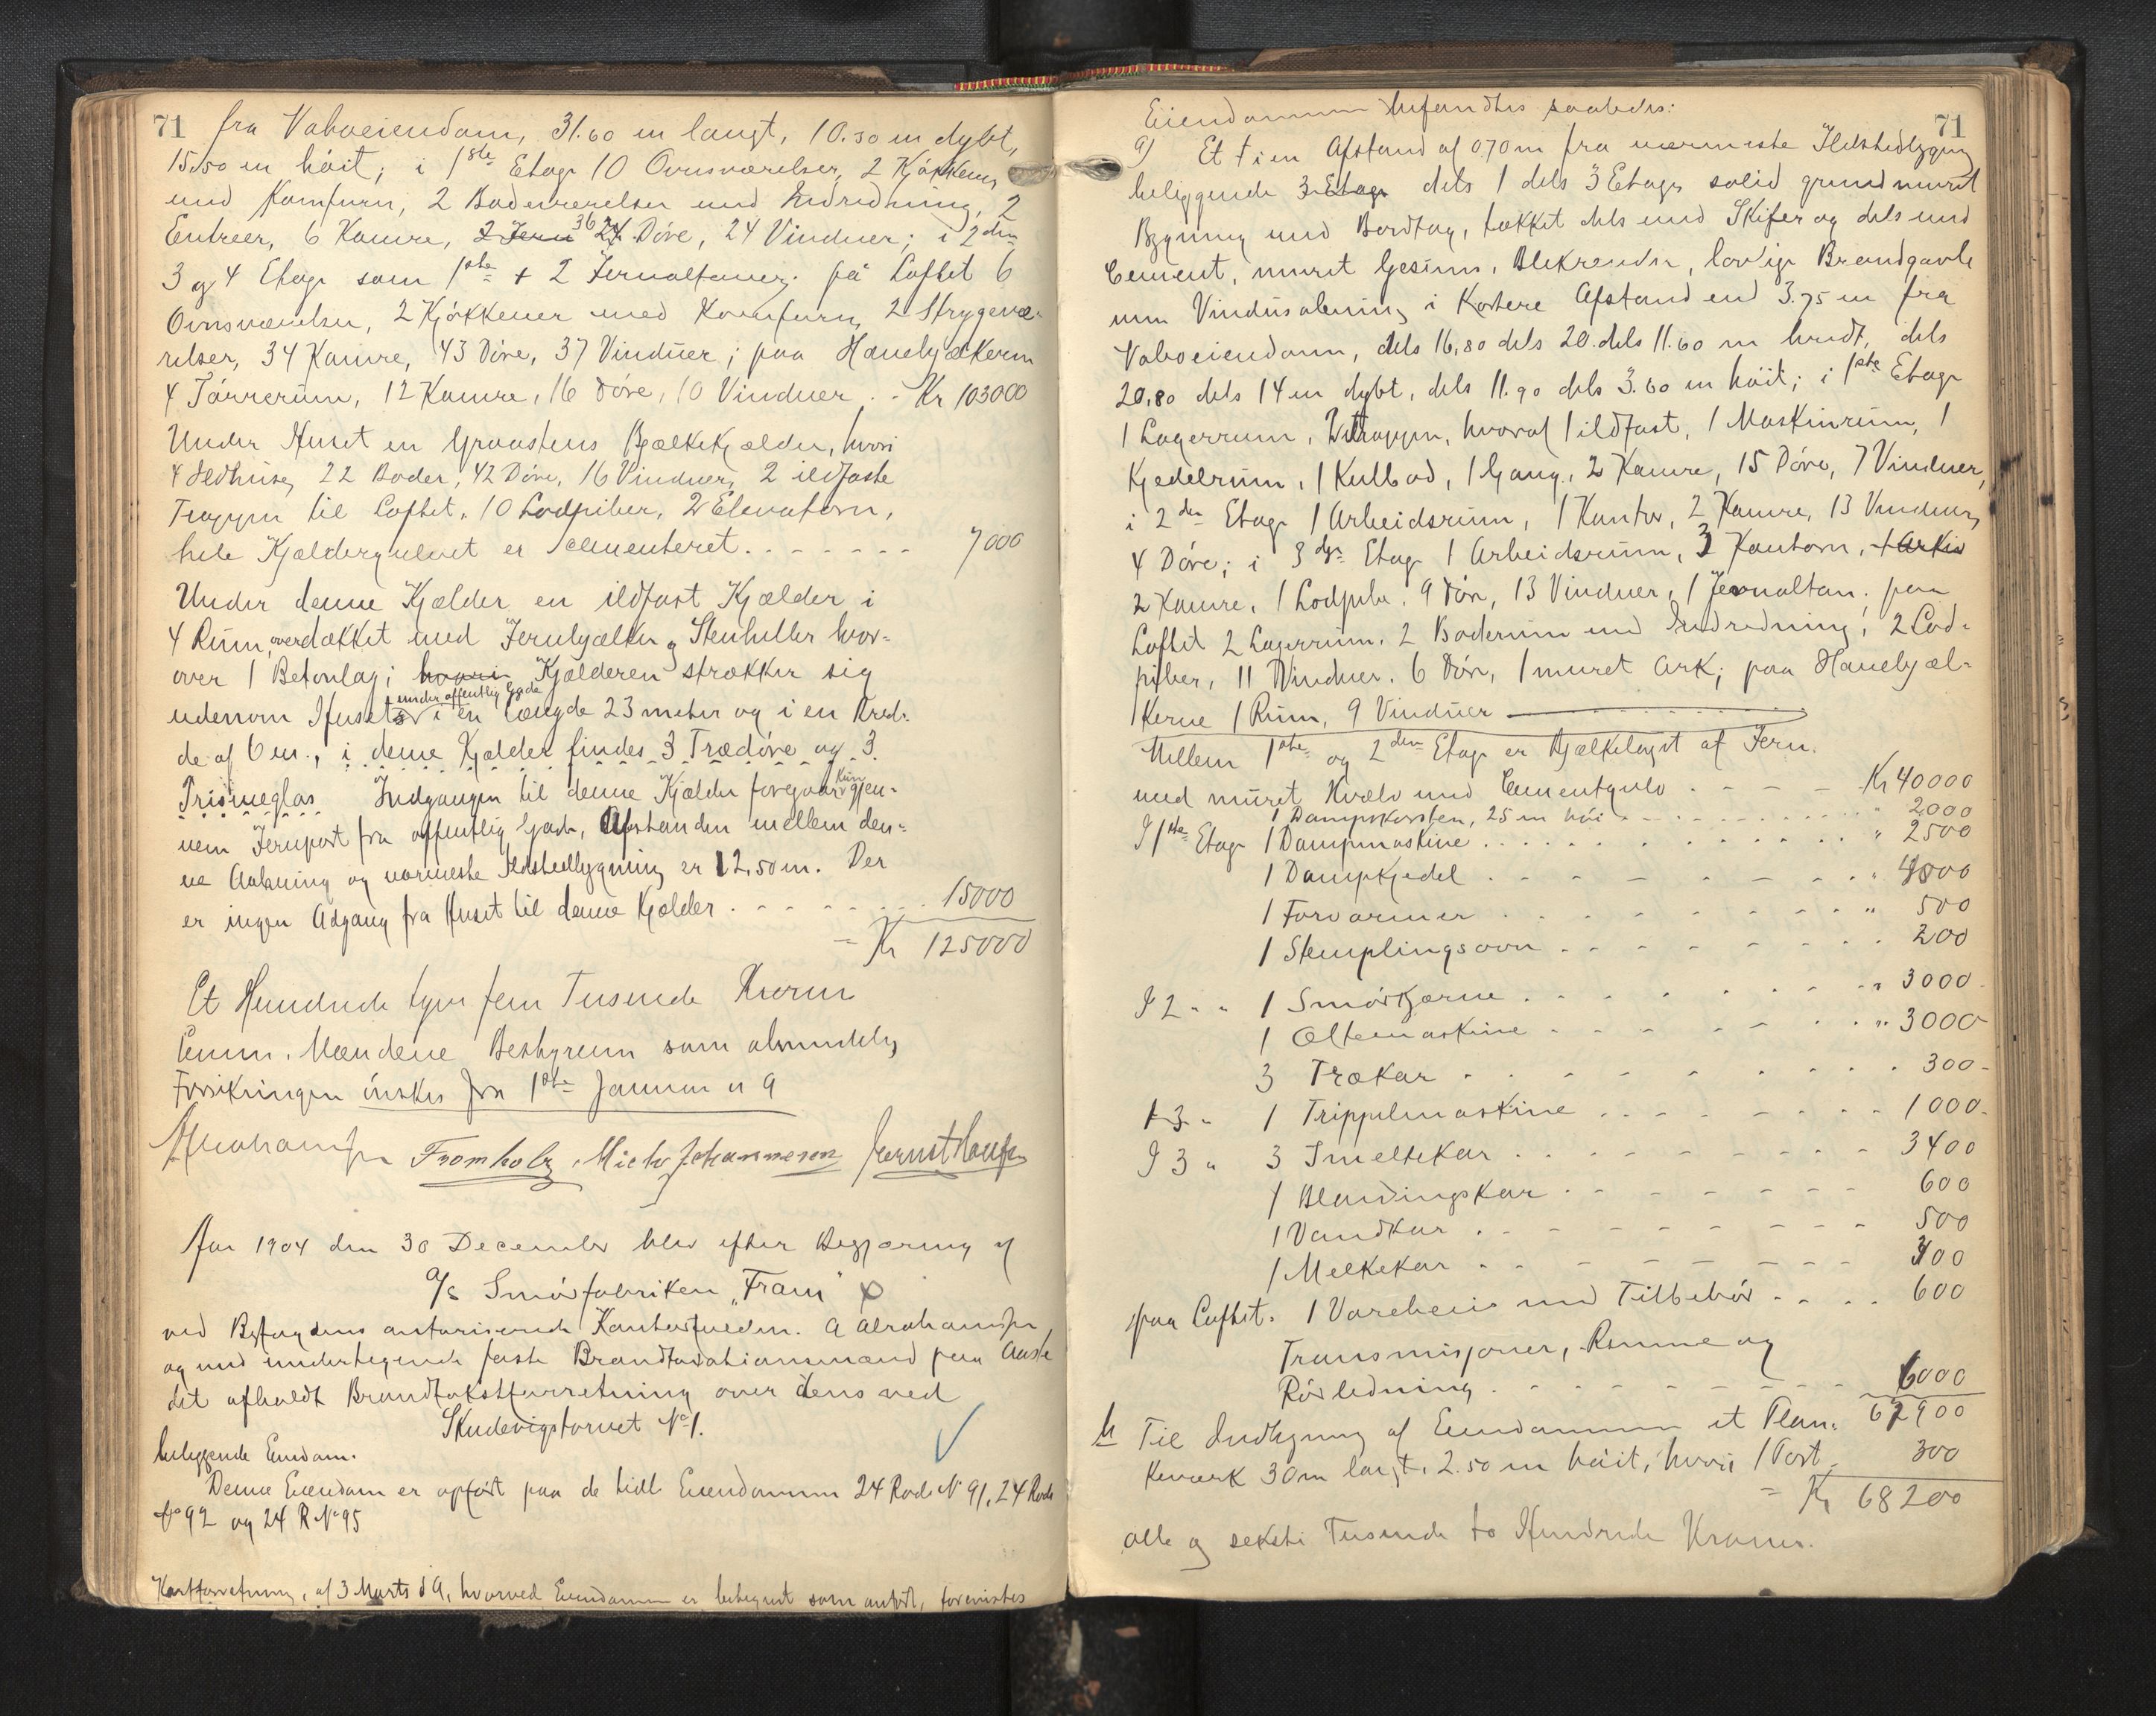 71 fra Naboeiendom, 31.60 m langt, 10.30 m dybt,
15.50 m höit; i 1ste Etage 10 Ovnsværelser, 2 Kjøkkener
med Komfurer, 2 Badeværelser med Indredning, 2
Entreer, 6 Kamre, 2 Jern 36 24 Döre, 24 Vinduer; i 2den
3 og 4 Etage som 1ste + 2 Jernaltaner; på Loftet 6
Ovnsværelser, 2 Kjøkkener med Komfurer, 2 Strygevæ-
relser, 34 Kamre, 43 Döre, 37 Vinduer; paa Hanebjælkerne
4 Tørrerum, 12 Kamre, 16 Döre, 10 Vinduer . - Kr 103000
Under Huset en Graastens Bjælkekjælder, hvori
4 Ildhuse, 22 Boder, 42 Döre, 16 Vinduer, 2 ildfaste
Trapper til Loftet, 10 Lodpiber, 2 Elevatorer,
hele Kjældergulvet er cementeret . . - - - - - 7000
Under denne Kjælder en ildfast Kjælder i
4 Rum, overdækket med Jernbjælker og Stenheller hvor-
over 1 Betonlag; hvori Kjælderen strækker sig
udenom Huset under offentlig Gade i en Længde 23 meter og i en Bred-
de af 6 m., i denne Kjælder findes 3 Trædöre og 3
Prismeglas. Indgangen til denne Kjælder foregaar kun gjen-
nem Jernport fra offentlig Gade, Afstanden mellem den-
ne Aabning og nærmeste Ildstedbygning er 12.50 m. Der
er ingen Adgang fra Huset til denne Kjælder . - - - - - 15000
= Kr 125000
Et Hundrede tyve fem Tusende Kroner
Comm. Mændene Bestyreren som almindelig
Forsikringen önskes fra 1ste Januar n A
Abrahamsen Fromholz Michs Johannesen Jernst Hauge
Aar 1904 den 30 December blev efter Begjæring af
A/S Smörfabriken "Fram"
ved Byfogdens autoriserede Kontorfuldm. A Abrahamsen
og med undertegnede faste Brandtaxationsmænd paa Aaste
det afholdt Brandtakstforretning over dens ved
Skudevigstorvet No 1.
beliggende Eiendom.
Denne Eiendom er opfört paa de tidl Eiendomme 24 Rode No 91, 24 Rode
No 92 og 24 R No 95
Kartforretning, af 3 Marts d A, hvorved Eiendommen er betegnet som anfört, forevistes
71
Eiendommen befandtes saaledes:
a) Et i en Afstand af 0.70 m fra nærmeste Ildstedbygning
beliggende 3 Etage dels 1 dels 3 Etages solid grundmuret
Bygning med Bordtag, tækket dels med Skifer og dels med
Cement, muret Gesims, Blikrender, lovlige Brandgavle
uden Vindusabning i kortere Afstand end 3.75 m fra
Naboeiendom, dels 16.80 dels 20. dels 11.60 m bredt, dels
20.80 dels 14 m dybt, dels 11.90 dels 3.60 m höit; i 1ste Etage
1 Lagerrum, 2 Trapper, hvoraf 1 ildfast, 1 Maskinrum, 1
Kjedelrum, 1 Kulbod, 1 Gang, 2 Kamre, 15 Döre, 7 Vinduer,
i 2den Etage 1 Arbeidsrum, 1 Kontor, 2 Kamre, 13 Vinduer,
4 Döre; i 3die Etage 1 Arbeidsrum, 3 Kontorer, 1 Arkiv
2 Kamre, 1 Lodpibe, 9 Döre, 13 Vinduer, 1 Jernaltan; paa
Loftet 2 Lagerrum, 2 Baderum med Indredning, 2 Lod-
piber, 11 Vinduer, 6 Döre, 1 muret Ark; paa Hanebjæl-
kerne 1 Rum, 9 Vinduer
Mellem 1ste og 2den Etage er Bjælkelaget af Jern
med muret Hvælv med Cementgulv . - - - Kr 40000
1 Dampskorsten, 25 m höi . . . . . . . " 2000
I 1ste Etage 1 Dampmaskine . . . . . . . " 2500
1 Dampkjedel . - - - - - " 4000
1 Forvarmer - - - - - - " 500
1 Stemplingsovn . - - - - 200
I 2 " " 1 Smörkjærne . . . . . . " 3000
1 Æltemaskine - - - - " 3000
3 Trækar . - - - - - 300
I 3 " 1 Trippelmaskine . . - - - 1000
I 3 " 3 Smeltekar . . . - - - 3400
1 Blandingskar . - - - - 600
1 Vandkar . - - - - - 500
1 Melkekar - - - - - - 400
paa Loftet. 1 Vareheis med Tilbehör . . . . 600
Transmisjoner, Remme og
Rörledning . - - - - - - - 6000
b Til Indhegning af Eiendommen et Plan- 67900
keværk 30 m langt, 2.50 m höit, hvori 1 Port . 300
= Kr 68200
otte og seksti Tusende to Hundrede Kroner.